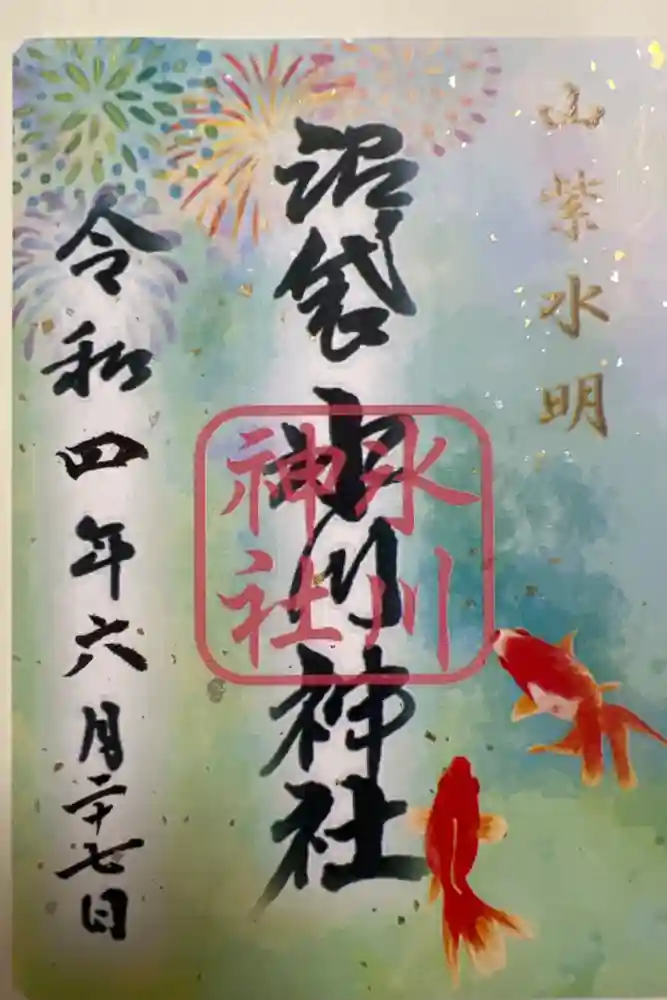 山紫水明
沼袋氷川神社
氷川
神社
令和四年六月二十七日